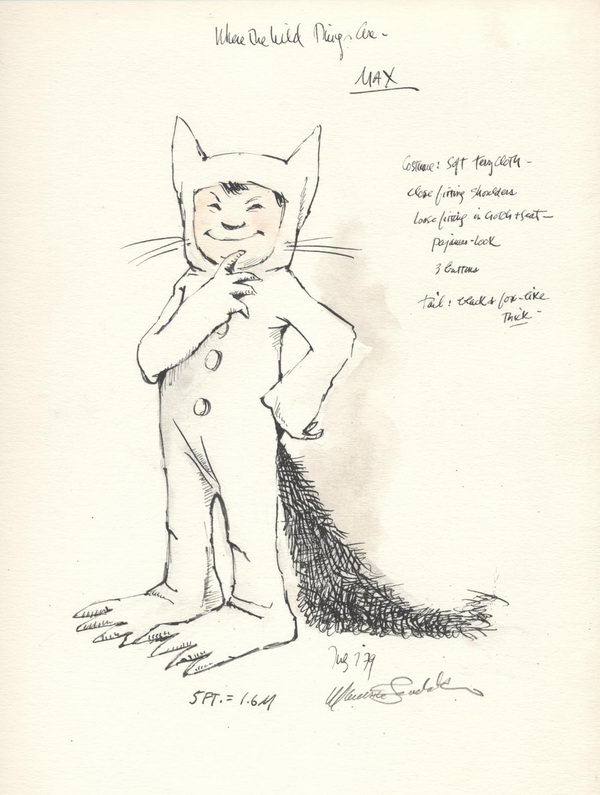 Where The Wild Things Are -
MAX
Costume: Soft terrycloth -
close fitting shoulders
loose fitting in crotch + seat -
pajama - look
3 buttons
tail: black & fox-like
THICK -
'79
5 FT. = 1.6 M
Maurice Sendak